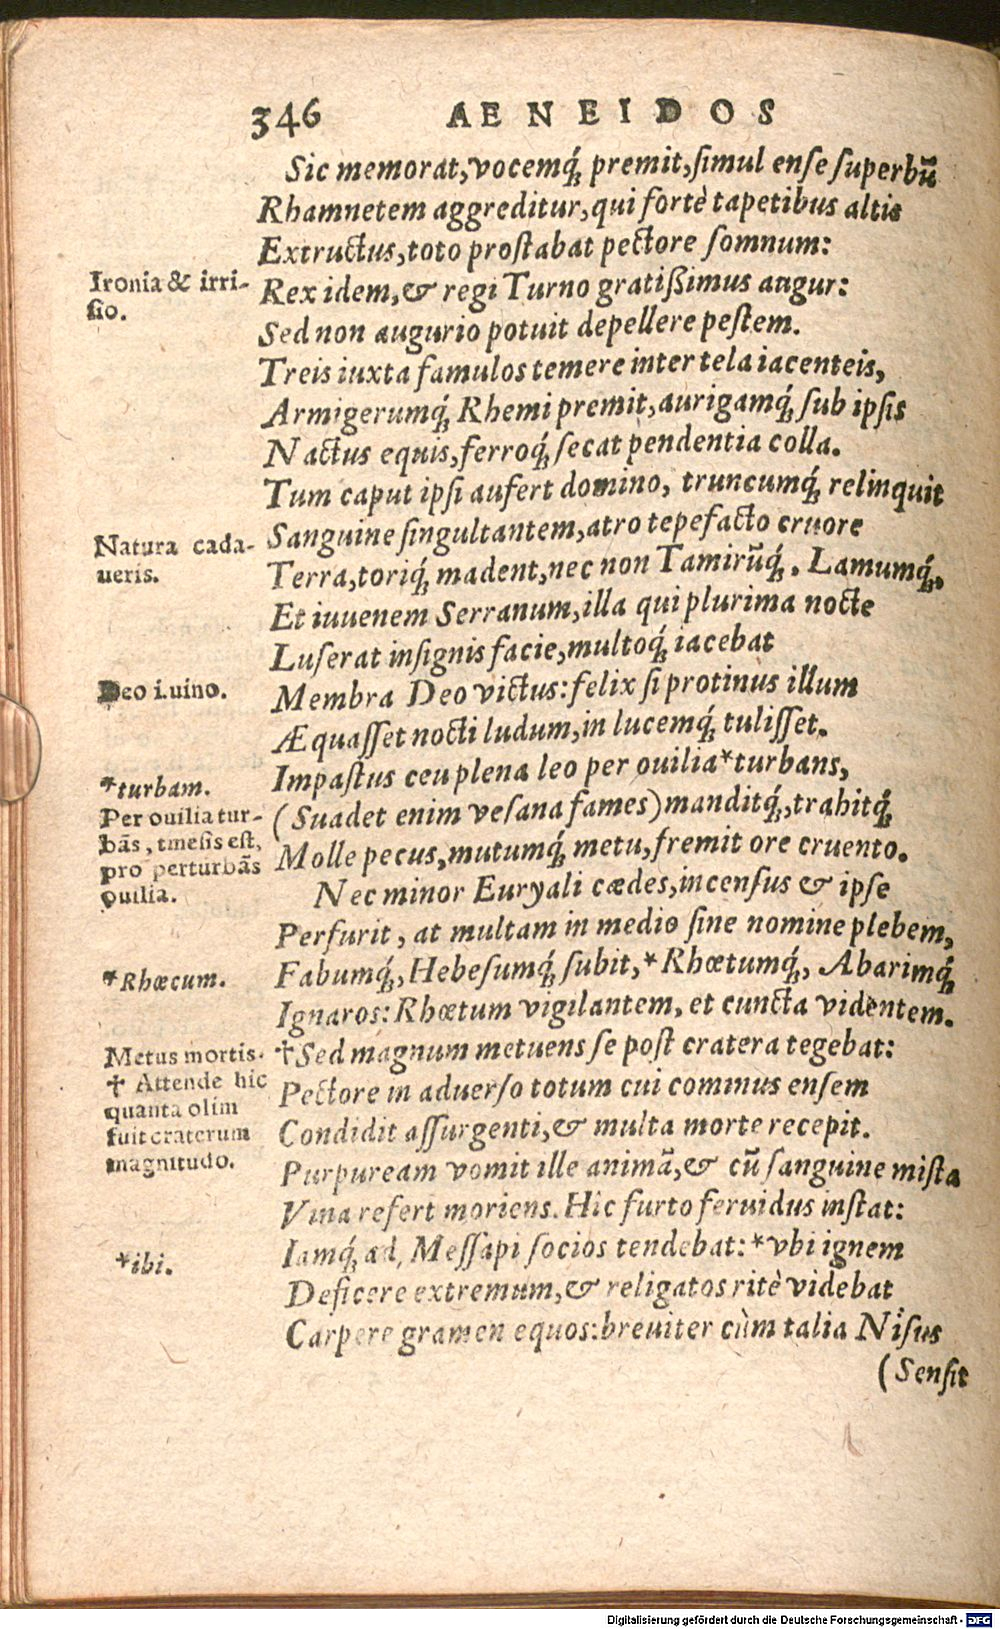 346 AENEIDOS
Sic memorat, vocemq́; premit, ſimul enſe ſuperbũ
Rhamnetem aggreditur, qui fortè tapetibus altis
Extructus, toto proſtabat pectore ſomnum:
Ironia & irri-
ſio.
Rex idem, & regi Turno gratißimus augur:
Sed non augurio potuit depellere peſtem.
Treis iuxta famulos temere inter tela iacenteis,
Armigerumq́; Rhemi premit, aurigamq́; ſub ipſis
Nactus equis, ferroq́; ſecat pendentia colla.
Tum caput ipſi aufert domino, truncumq́; relinquit
Natura cada-
ueris.
Sanguine ſingultantem, atro tepefacto cruore
Terra, toriq́; madent, nec non Tamirũq́;, Lamumq́;,
Et iuuenem Serranum, illa qui plurima nocte
Luſerat inſignis facie, multoq́; iacebat
Deo i.uino.
Membra Deo victus: felix ſi protinus illum
Æquaſſet nocti ludum, in lucemq́; tuliſſet.
*turbam.
Per ouilia tur-
bãs, tmeſis eſt,
pro perturbãs
ouilia.
Impaſtus ceu plena leo per ouilia *turbans,
(Suadet enim veſana fames) manditq́;, trahitq́;
Molle pecus, mutumq́; metu, fremit ore cruento.
Nec minor Euryali cædes, incenſus & ipſe
Perfurit, at multam in medio ſine nomine plebem,
*Rhœcum.
Fabumq́;, Hebeſumq́; ſubit, *Rhœtumq́;, Abarimq́;
Ignaros: Rhœtum vigilantem, et cuncta videntem.
Metus mortis.
✝ Attende hic
quanta olim
fuit craterum
magnitudo.
✝Sed magnum metuens ſe poſt cratera tegebat:
Pectore in aduerſo totum cui cominus enſem
Condidit aſſurgenti, & multa morte recepit.
Purpuream vomit ille animã, & cũ ſanguine miſta
Vina refert moriens. Hic furto feruidus inſtat:
*ibi.
Iamq́; ad, Meſſapi ſocios tendebat: *vbi ignem
Deficere extremum, & religatos ritè videbat
Carpere gramen equos: breuiter cùm talia Niſus
(Senſit
Digitalisierung gefördert durch die Deutsche Forschungsgemeinschaft - DFG